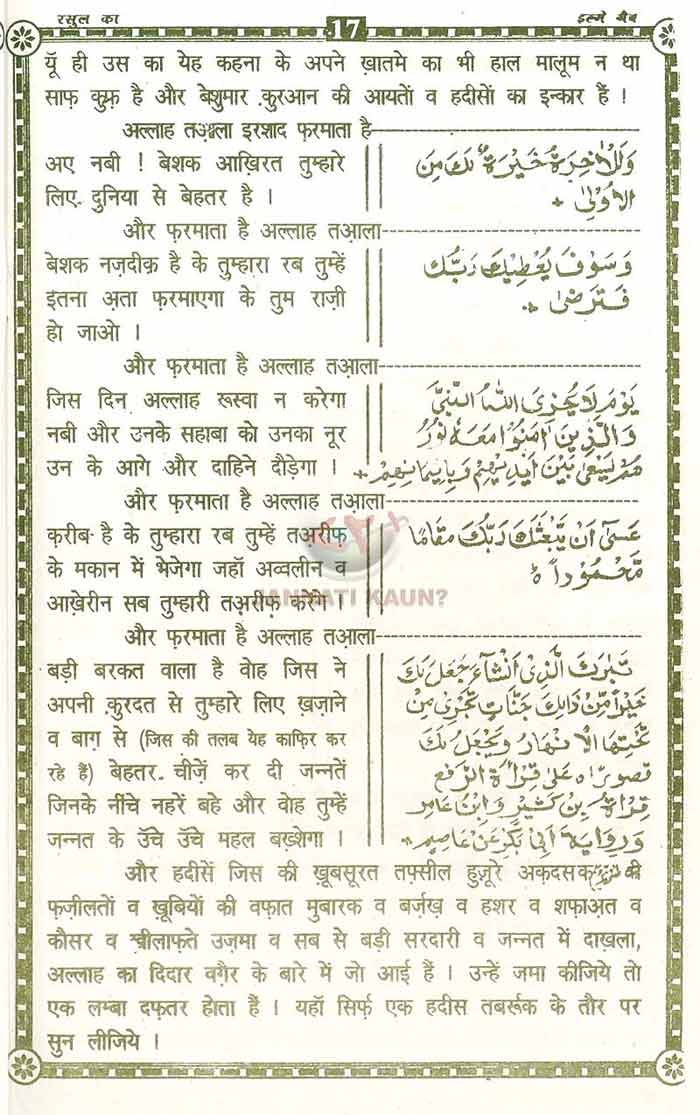 रसुल का
17
इल्मे ग़ैब
यूँ ही उस का येह कहना के अपने ख़ातमे का भी हाल मालूम न था
साफ़ कुफ़्र है और बेशुमार क़ुरआन की आयतों व हदीसों का इन्कार हैं ।
अल्लाह तआ़ला इरशाद फ़रमाता है
अए नबी ! बेशक आख़िरत तुम्हारे
लिए दुनिया से बेहतर है ।
وَلَلْاٰخِرَةُ خَيْرَةٌ لَكَ مِنَ
الْاُوْلٰى
और फ़रमाता है अल्लाह तआ़ला
बेशक नज़दीक़ है के तुम्हारा रब तुम्हें
इतना अ़ता फ़रमाएगा के तुम राज़ी
हो जाओ ।
وَسَوْفَ يُعْطِيْكَ رَبُّكَ
فَتَرْضٰى
और फ़रमाता है अल्लाह तआ़ला
जिस दिन अल्लाह रूस्वा न करेगा
नबी और उनके सहाबा को उनका नूर
उन के आगे और दाहिने दौड़ेगा ।
يَوْمَ لَا يُخْزِى اللّٰهُ النَّبِىَّ
وَالَّذِيْنَ اٰمَنُوْا مَعَهٗ نُوْرُ
هُمْ يَسْعٰى بَيْنَ اَيْدِيْهِمْ وَبِاَيْمَانِهِمْ
और फ़रमाता है अल्लाह तआ़ला
क़रीब है के तुम्हारा रब तुम्हें तअ़रीफ़
के मकान में भेजेगा जहाँ अव्वलीन व
आख़ेरीन सब तुम्हारी तअ़रीफ़ करेंगे ।
عَسٰى اَنْ يَّبْعَثَكَ رَبُّكَ مَقَامًا
مَّحْمُوْدًا
JANNATI KAUN?
और फ़रमाता है अल्लाह तआ़ला
बड़ी बरकत वाला है वोह जिस ने
अपनी क़ुरदत से तुम्हारे लिए ख़ज़ाने
व बाग़ से (जिस की तलब येह काफ़िर कर
रहे हैं) बेहतर चीज़ें कर दी जन्नतें
जिनके नींचे नहरें बहे और वोह तुम्हें
जन्नत के उँचे उँचे महल बख़्शेगा ।
تَبٰرَكَ الَّذِىْ اَنْشَاءَ جَعَلَ لَكَ
خَيْرًا مِّنْ ذَالِكَ جَنّٰتٍ تَجْرِىْ مِنْ
تَحْتِهَا الْاَنْهَارُ وَيَجْعَلْ لَكَ
قُصُوْرًا عَلٰى قِرْأَةِ الرَّفْعِ
قِرْأَةُ بْنِ كَثِيْرٍ وَابْنِ عَامِرٍ
وَرِوَايَةِ اَبِىْ بَكْرٍ عَنْ عَاصِمٍ
और हदीसें जिस की ख़ूबसूरत तफ़्सील हुज़ूरे अक़दस की
फ़ज़ीलतों व ख़ूबियों की वफ़ात मुबारक व बर्ज़ख़ व हशर व शफ़ाअ़त व
कौसर व ख़ीलाफ़ते उज़मा व सब से बड़ी सरदारी व जन्नत में दाख़्ला,
अल्लाह का दिदार वग़ैर के बारे में जो आई हैं । उन्हें जमा कीजिये तो
एक लम्बा दफ़तर होता हैं । यहाँ सिर्फ़ एक हदीस तबर्रूक के तौर पर
सुन लीजिये ।